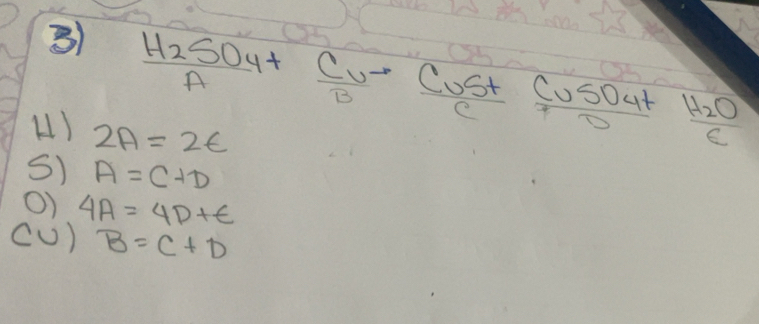 3) H2SO4+ Cu→ CuS+ CuSO4+ H2O
A B C D E
H) 2A = 2E
S) A = C+D
O) 4A = 4D+E
CU) B = C+D